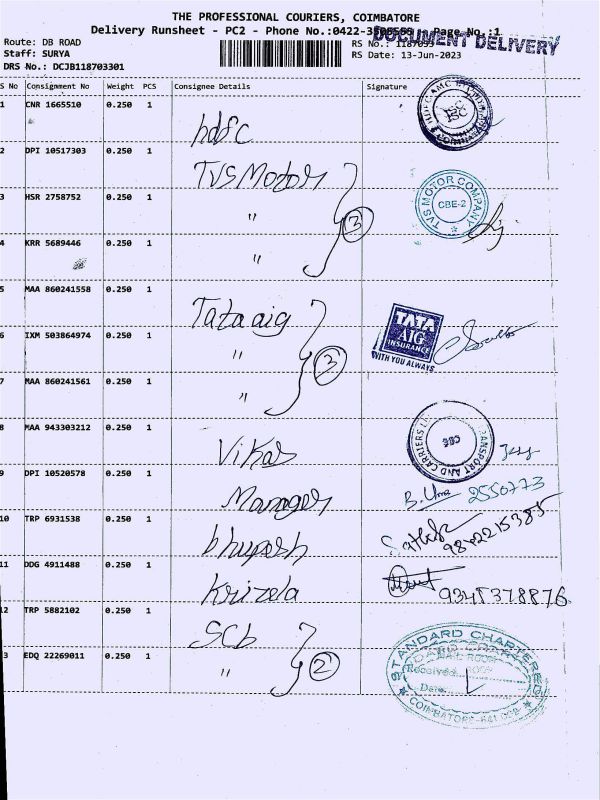 THE PROFESSIONAL COURIERS, COIMBATORE
Delivery Runsheet - PC2 - Phone No.:0422- Page No.:1
DOCUMENT DELIVERY
Route: DB ROAD RS No.:
Staff: SURYA RS Date: 13-Jun-2023
DRS No.: DCJB118703301
S No Consignment No Weight PCS Consignee Details Signature
1 CNR 1665510 0.250 1 hdfc
2 DPI 10517303 0.250 1 TVS Motors
3 HSR 2758752 0.250 1 " 3
TVS MOTOR COMPANY CBE-2
4 KRR 5689446 0.250 1 "
5 MAA 860241558 0.250 1 Tata aig
TATA AIG INSURANCE
WITH YOU ALWAYS
6 IXM 503864974 0.250 1 " 3
7 MAA 860241561 0.250 1 "
8 MAA 943303212 0.250 1 Vikas
TRANSPORT AND CARRIERS
9 DPI 10520578 0.250 1 Manager B. Uma 2550773
10 TRP 6931538 0.250 1 bhupesh 9842215385
11 DDG 4911488 0.250 1 Krizela 9345378876
12 TRP 5882102 0.250 1 SCb
13 EDQ 22269011 0.250 1 " 2
STANDARD CHARTERED
MAIL ROOM
Received
Date
COIMBATORE-641